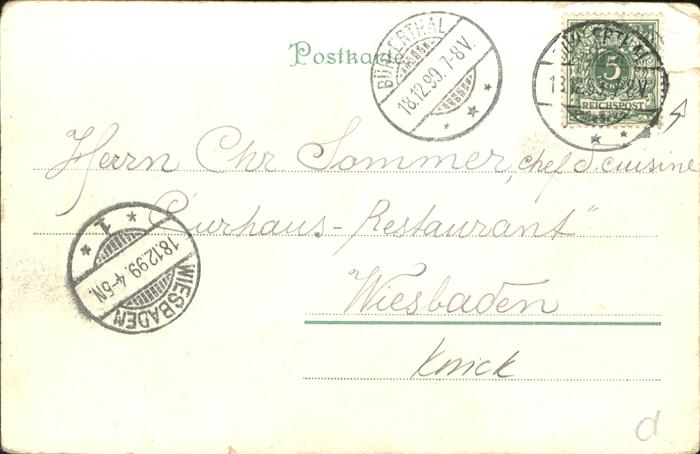 Postkarte
BÜHLERTHAL
18.12.99.7-8V.
BÜHLERTHAL
18.12.99.7-8V.
5
REICHSPOST
Herrn Chr. Sommer, chef d. cuisine
„Curhaus-Restaurant"
Wiesbaden
Knick
WIESBADEN
18.12.99.4-5N.
1
d